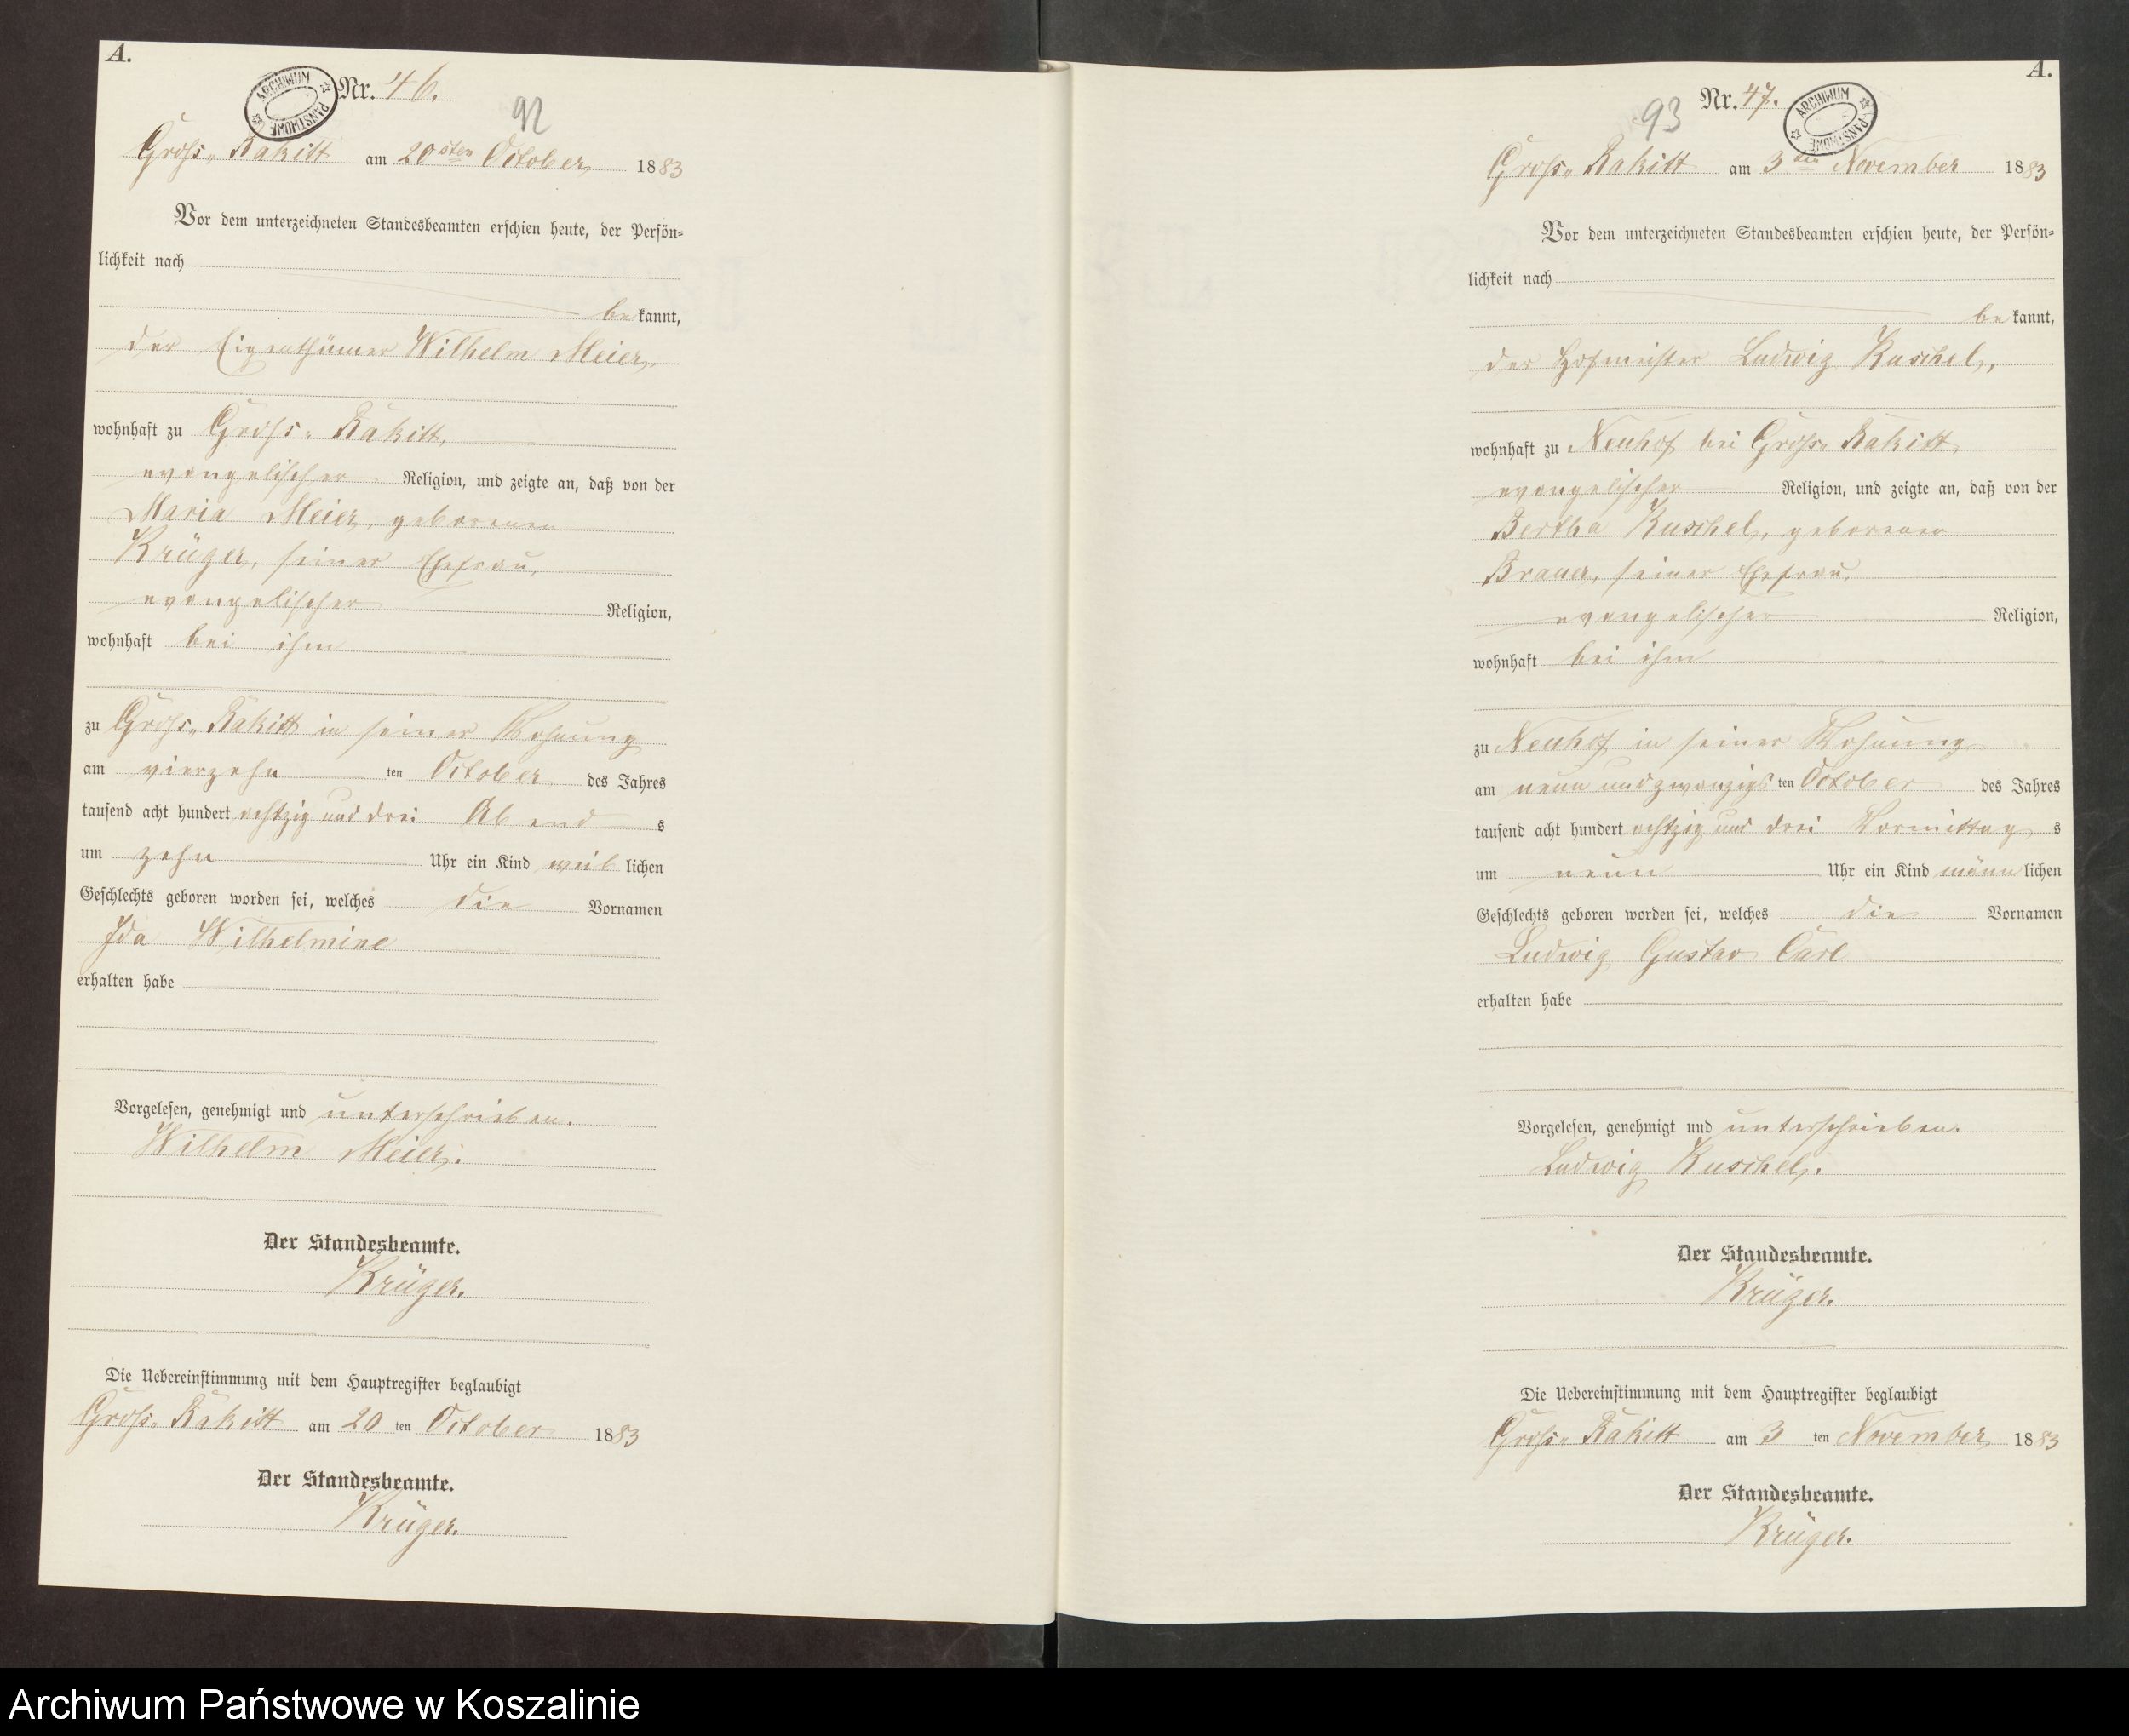 A.
Nr. 46.
ARCHIWUM PAŃSTWOWE
92
Groß-Rakitt am 20sten October 1883
Vor dem unterzeichneten Standesbeamten erschien heute, der Persön-
lichkeit nach
bekannt,
der Eigenthümer Wilhelm Meier,
wohnhaft zu Groß-Rakitt,
evangelischer Religion, und zeigte an, daß von der
Maria Meier, geborenen
Krüger, seiner Ehefrau,
evangelischer Religion,
wohnhaft bei ihm
zu Groß-Rakitt in seiner Wohnung
am vierzehnten October des Jahres
tausend acht hundert achtzig und drei Abends
um zehn Uhr ein Kind weiblichen
Geschlechts geboren worden sei, welches die Vornamen
Ida Wilhelmine
erhalten habe
Vorgelesen, genehmigt und unterschrieben.
Wilhelm Meier.
Der Standesbeamte.
Krüger.
Die Uebereinstimmung mit dem Hauptregister beglaubigt
Groß-Rakitt am 20ten October 1883
Der Standesbeamte.
Krüger.
A.
Nr. 47.
ARCHIWUM PAŃSTWOWE
93
Groß-Rakitt am 3ten November 1883
Vor dem unterzeichneten Standesbeamten erschien heute, der Persön-
lichkeit nach
bekannt,
der Hofmeister Ludwig Kuschel,
wohnhaft zu Neuhof bei Groß-Rakitt,
evangelischer Religion, und zeigte an, daß von der
Bertha Kuschel, geborenen
Brauer, seiner Ehefrau,
evangelischer Religion,
wohnhaft bei ihm
zu Neuhof in seiner Wohnung
am neun und zwanzigsten October des Jahres
tausend acht hundert achtzig und drei Vormittags
um neun Uhr ein Kind männlichen
Geschlechts geboren worden sei, welches die Vornamen
Ludwig Gustav Carl
erhalten habe
Vorgelesen, genehmigt und unterschrieben.
Ludwig Kuschel.
Der Standesbeamte.
Krüger.
Die Uebereinstimmung mit dem Hauptregister beglaubigt
Groß-Rakitt am 3ten November 1883
Der Standesbeamte.
Krüger.
Archiwum Państwowe w Koszalinie